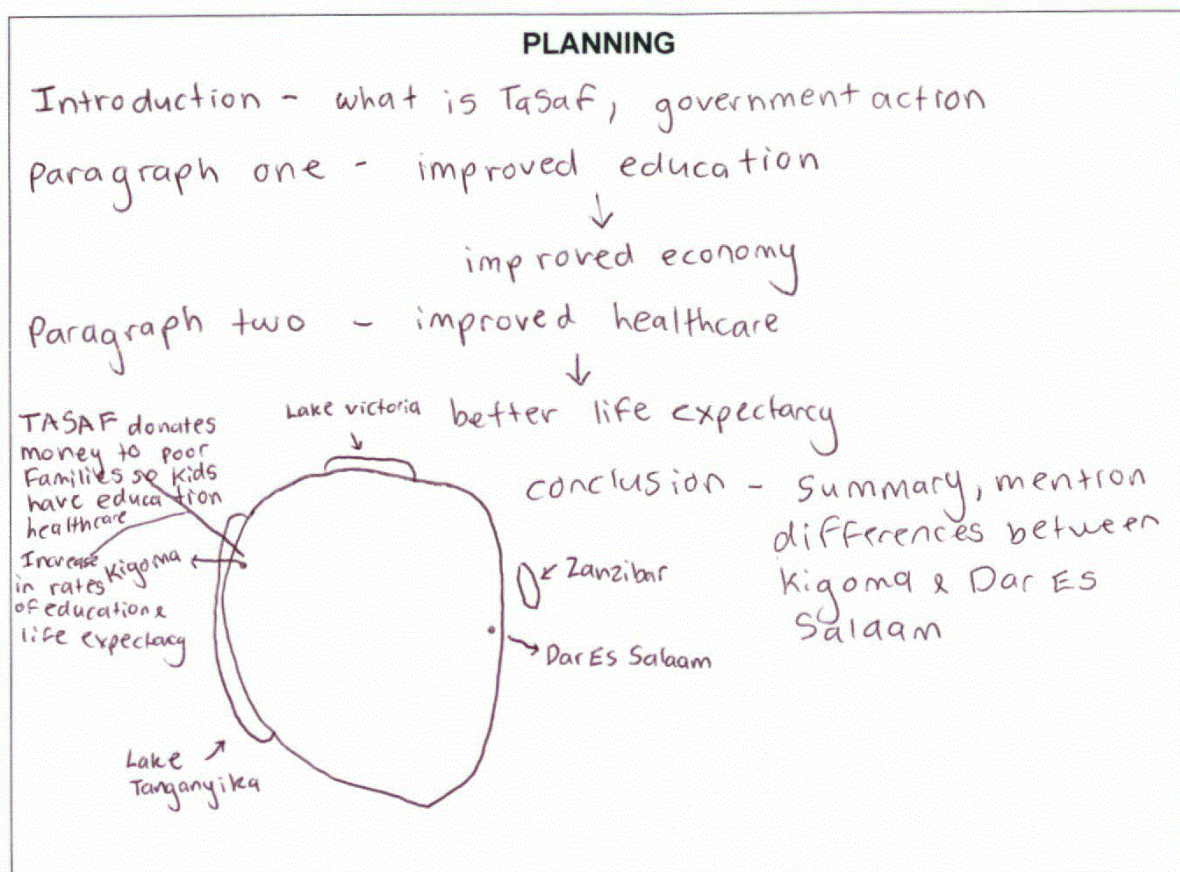 PLANNING
Introduction - what is Tasaf, government action
Paragraph one - improved education
↓
improved economy
Paragraph two - improved healthcare
↓
better life expectancy
conclusion - summary, mention
differences between
Kigoma & Dar Es
Salaam
TASAF donates
money to poor
Families so kids
have education
healthcare
Increase
in rates
of education &
life expectacy
Kigoma
Lake victoria
Zanzibar
Dar Es Salaam
Lake
Tanganyika